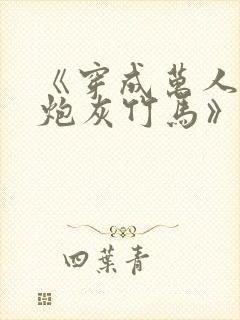 《穿成萬人
炮灰竹馬》
四葉青